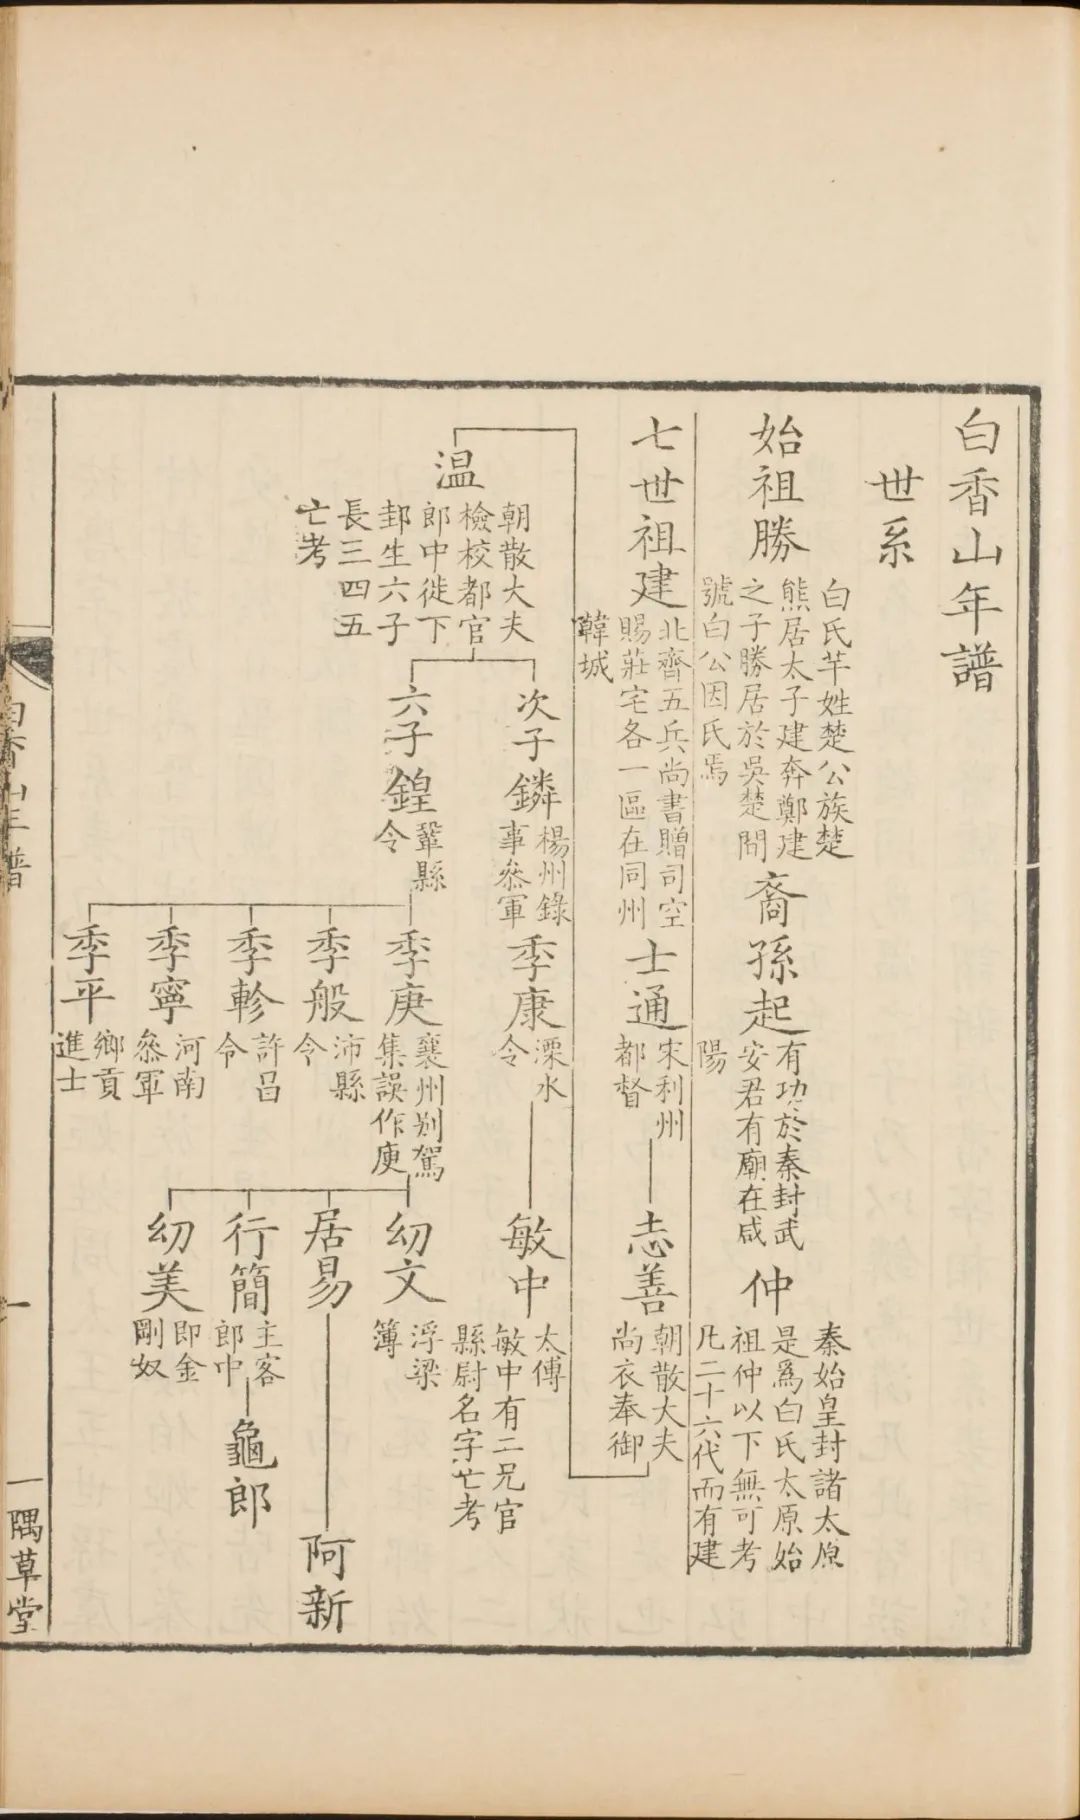 白香山年譜
世系
始祖勝
白氏芊姓楚公族楚
熊居太子建奔鄭建
之子勝居於吳楚間
號白公因氏焉
裔孫起
有功於秦封武
安君有廟在咸
陽
仲
秦始皇封諸太原
是爲白氏太原始
祖仲以下無可考
凡二十六代而有建
七世祖建
北齊五兵尚書贈司空
賜莊宅各一區在同州
韓城
士通
宋利州
都督
志善
朝散大夫
尚衣奉御
温
朝散大夫
檢校都官
郎中徙下
邽生六子
長三四五
亡考
次子鏻
楊州錄
事叅軍
季康
溧水
令
敏中
太傅
敏中有二兄官
縣尉名字亡考
六子鍠
鞏縣
令
季庚
襄州别駕
集誤作庾
幼文
浮梁
簿
季般
沛縣
令
居易
阿新
季軫
許昌
令
行簡
主客
郎中
龜郎
季寧
河南
叅軍
幼美
即金
剛奴
季平
鄉貢
進士
白香山年譜
一
一隅草堂